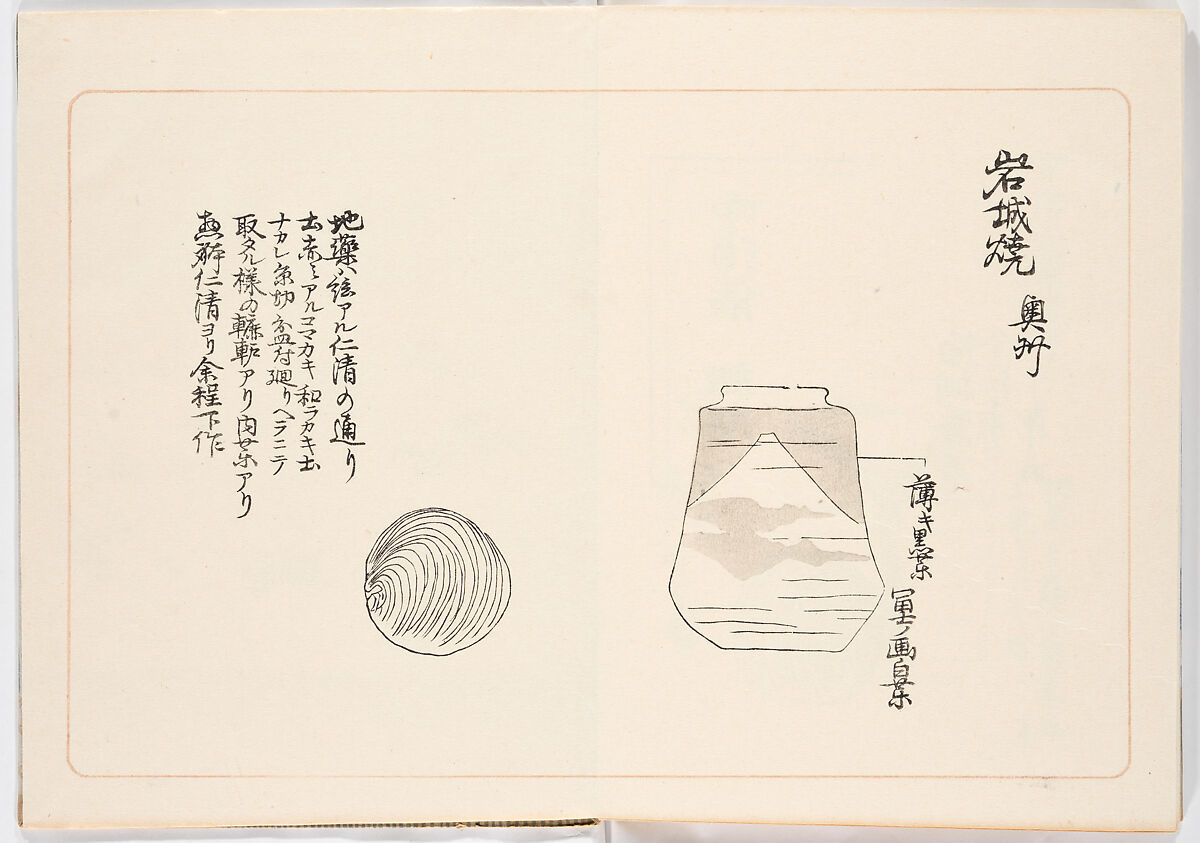 岩城焼
奥州
薄キ黒薬
冨士ノ画白薬
地薬ハ絵アル仁清の通り
土赤ミアルコマカキ和ラカキ土
ナカシ糸切 廻りヘラニテ
取タル様の轆轤アリ内薬アリ
惣躰仁清ヨリ余程下作